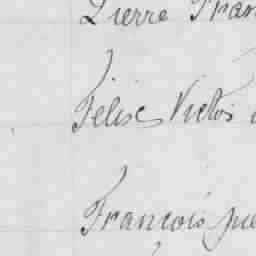 Pierre Fran
Félix Victor
François